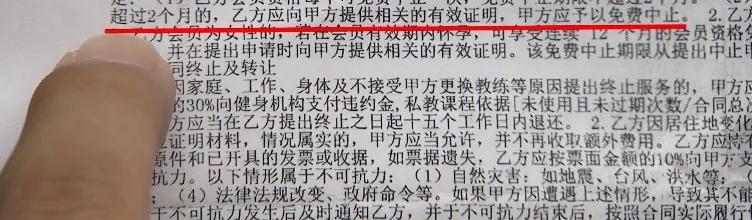 超过2个月的，乙方应向甲方提供相关的有效证明，甲方应予以免费中止。 2.乙方
乙方会员为女性的，若在会员有效期内怀孕，可享受连续 12 个月的会员资格免
并在提出申请时向甲方提供相关的有效证明。该免费中止期限从提出中止日
同终止及转让
因家庭、工作、身体及不接受甲方更换教练等原因提出终止服务的，甲方应
的30%向健身机构支付违约金,私教课程依据[未使用且未过期次数/合同总
方应当在乙方提出终止之日起十五个工作日内退还。 2.乙方因居住地变化
证明材料，情况属实的，甲方应当允许，并不再收取额外费用。乙方应持
原件和已开具的发票或收据，如票据遗失，乙方应按票面金额的10%向甲方
抗力。以下情形属于不可抗力：（1）自然灾害：如地震、台风、洪水等；
（4）法律法规改变、政府命令等。如果甲方因遭遇上述情形，导致其不能
于不可抗力发生后及时通知乙方，并于不可抗力结束后，按照合同实际履行